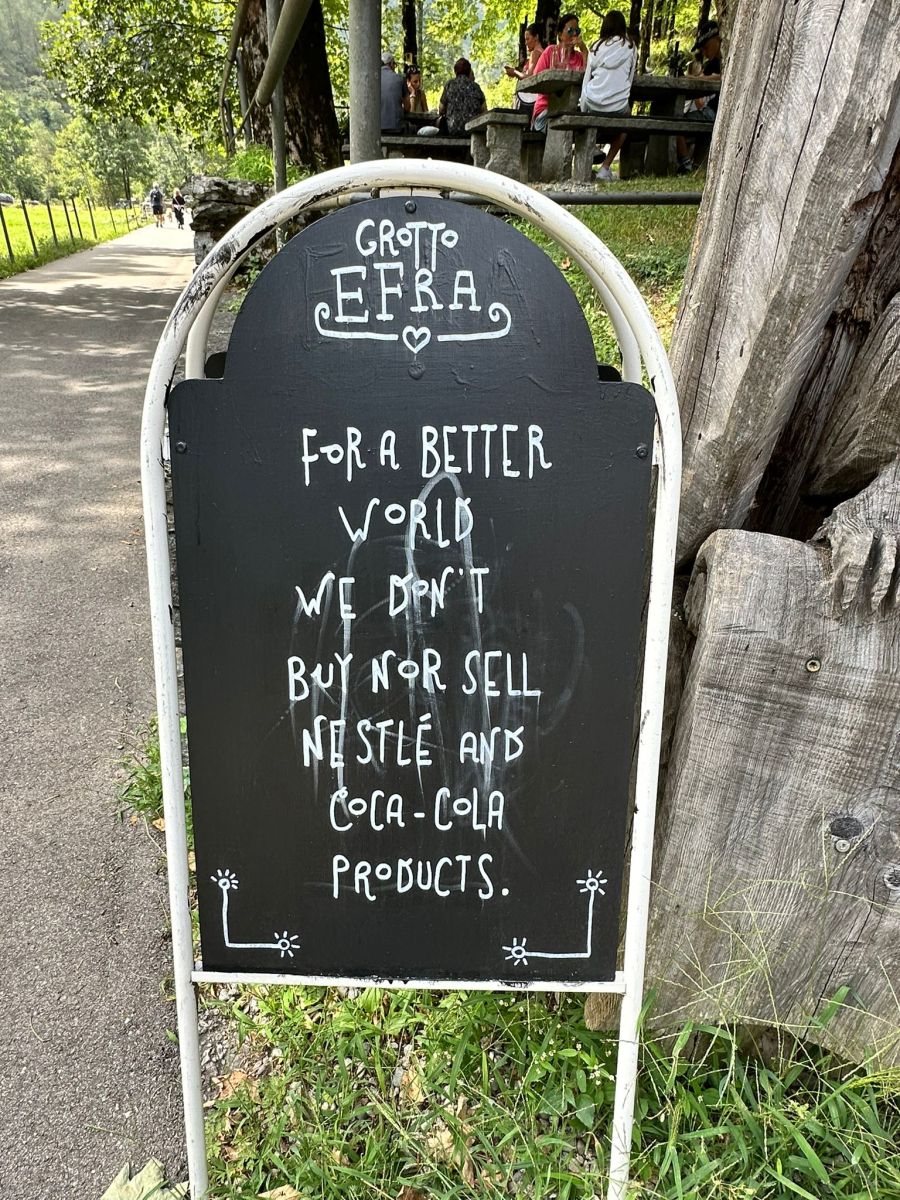 GROTTO
EFRA
FOR A BETTER
WORLD
WE DON'T
BUY NOR SELL
NESTLÉ AND
COCA-COLA
PRODUCTS.